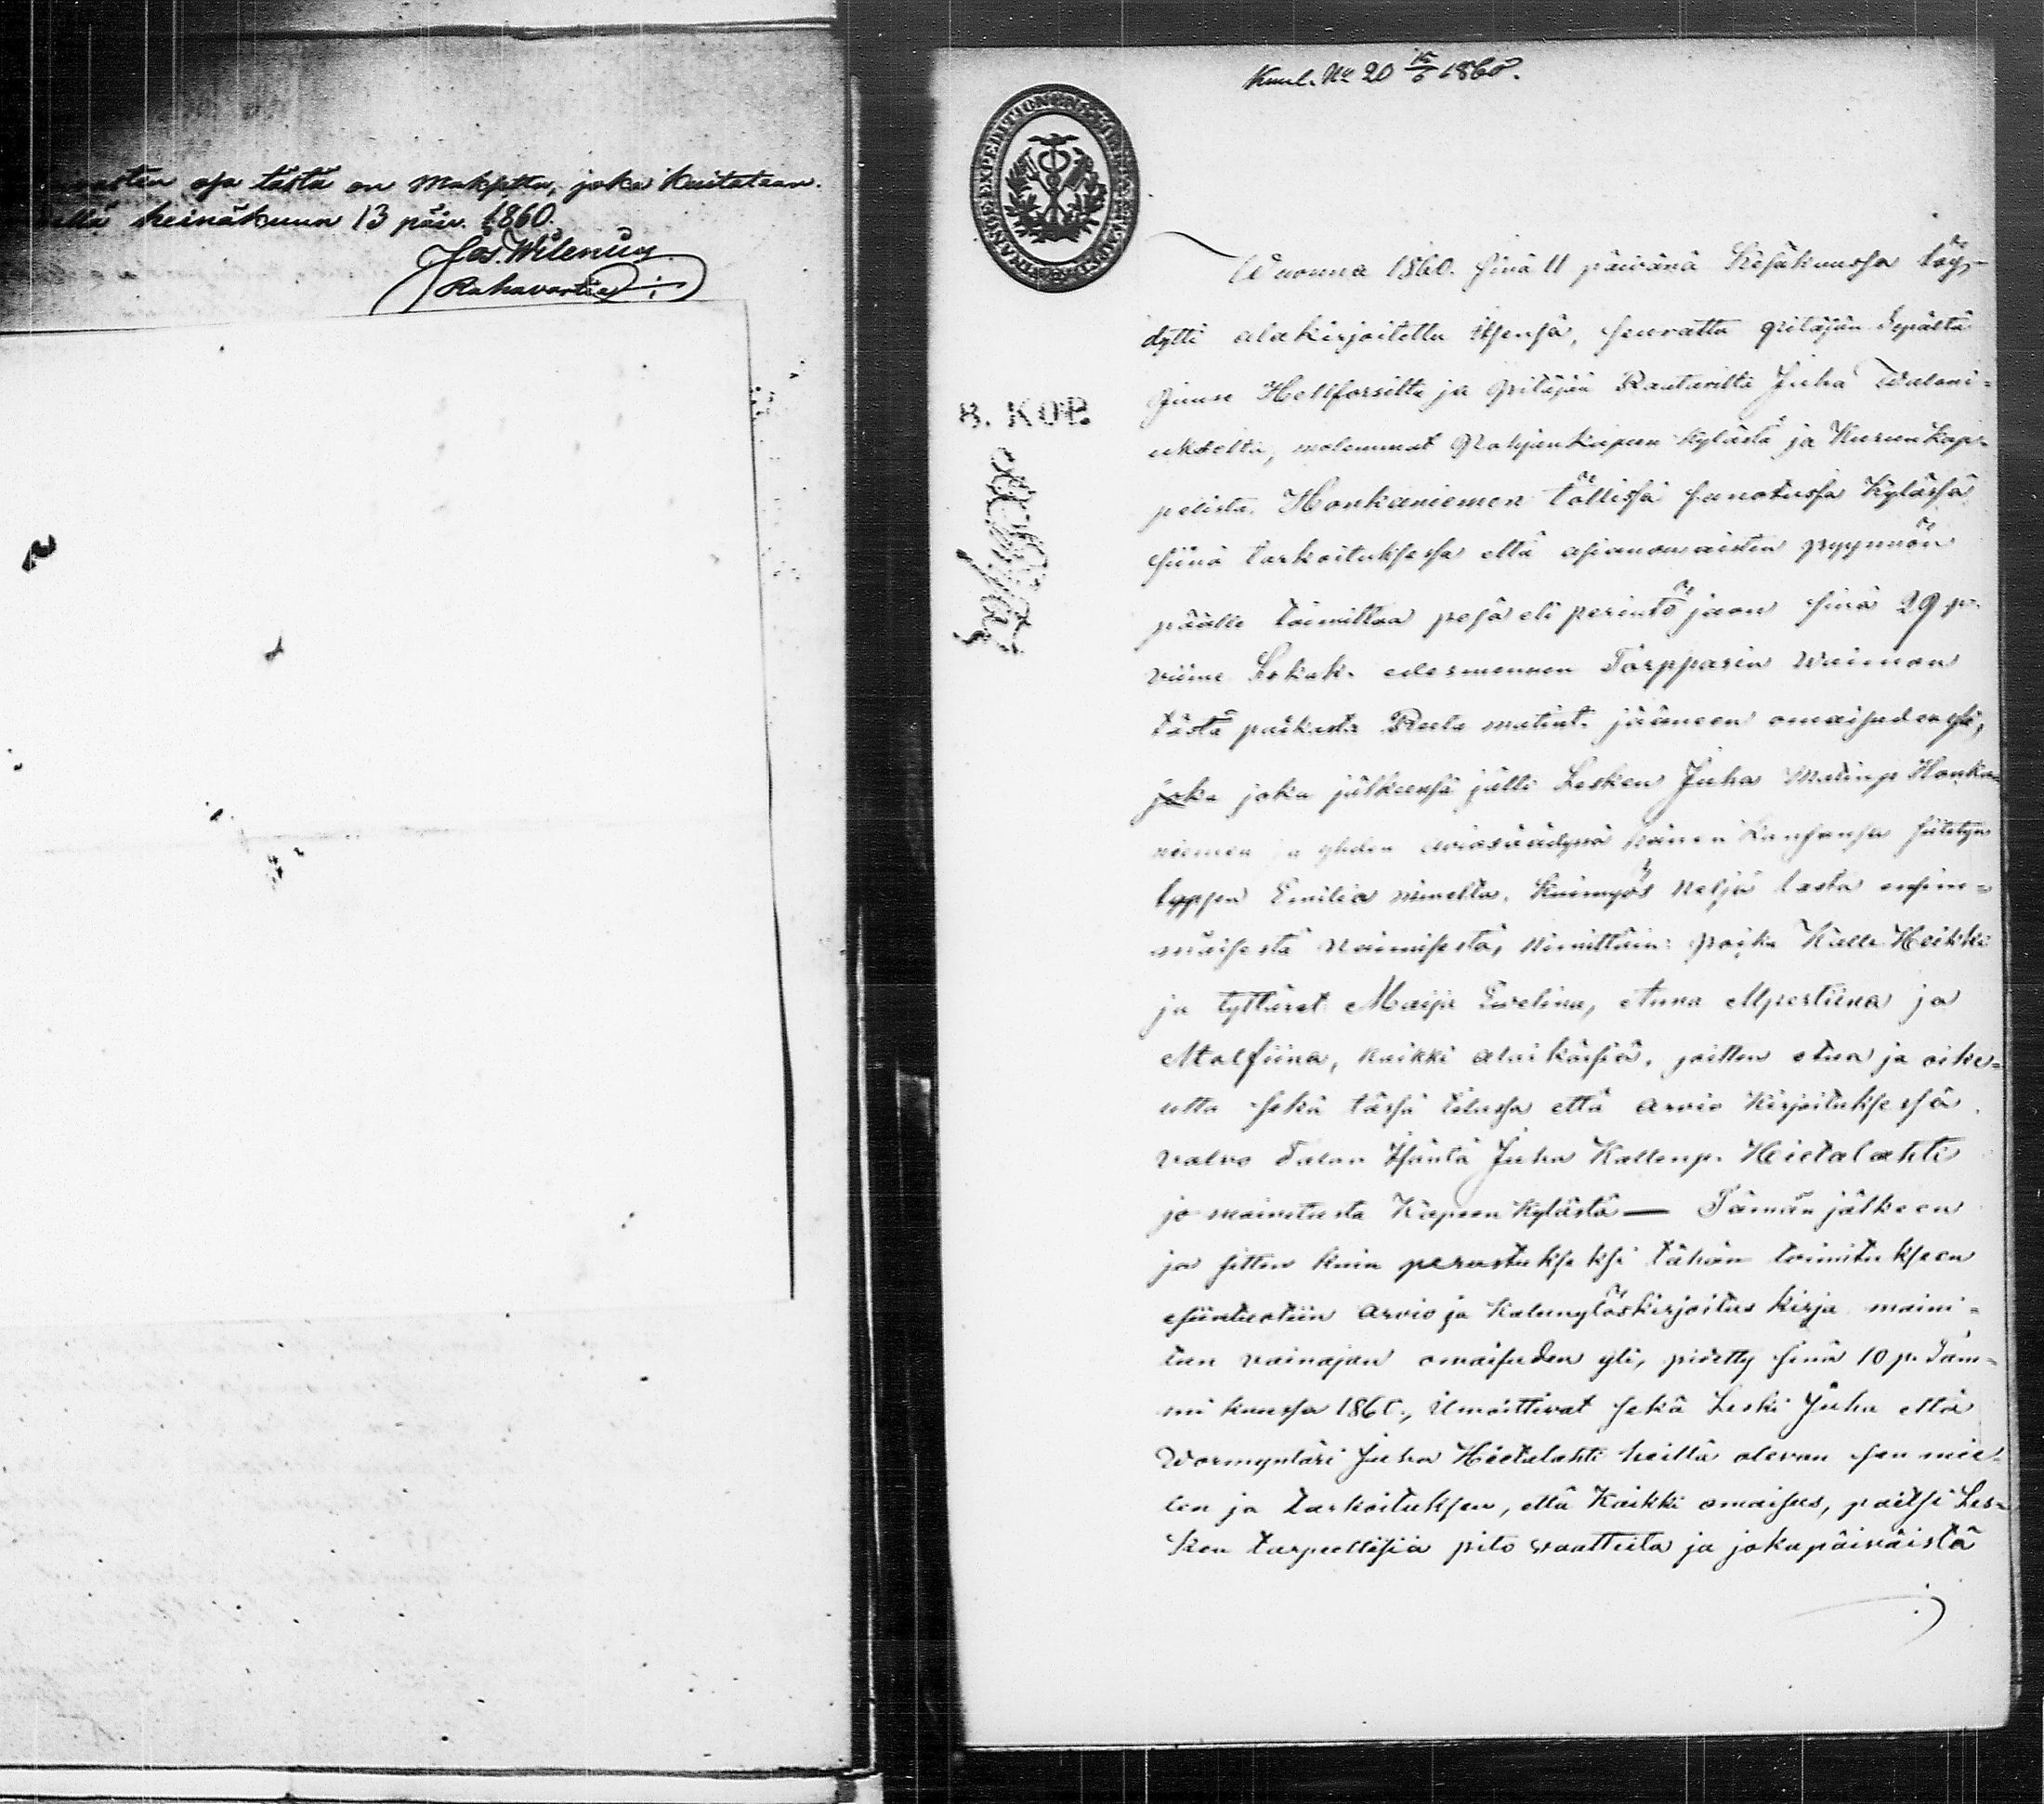 osa tästä on maksettu, joka kuitataan.
heinäkuun 13 päiv. 1860.
Jos. Wilenius
Rahavartia
Kuul. No 20 1860.
B. KOP.
Wuonna 1860. sinä 11 päivänä Kesäkuussa löy-
dytti alakirjoitettu itsensä, seurattu pitäjän Sepältä
Hellforsilta ja pitäjän Raatarilta Juha Waleni-
ukselta, molemmat Pohjankapeen kylästä ja Kurun kap-
pelista. Honkaniemen töllissä sanotussa Kylässä
siinä tarkoituksessa että asianomaisten pyynnön
päälle toimittaa pesä eli perintö jaon sinä 29 p.
viime Lokak. edesmennen Torpparin waimon
tästä paikasta Reeta Matint. jääneen omaisudensa,
joka joka jälkeensä jätti Lesken Juha Matinp. Honka-
niemen ja yhden aviosäädynä hänen kansansa siitetyn
Emilia nimeltä. Kuinmyös neljä lasta ensim-
mäisestä naimisesta, nimittäin: poika Kalle Heikki
ja tyttäret Maija Ewelina, Anna Alpertiina ja
Malfiina, kaikki alaikäisiä, joitten etua ja oike-
utta sekä tässä tilassa että arvio kirjoituksessa
valvo Talon Isäntä Juha Kallenp. Hietalahti
jo mainitusta Kapeen kylästä — Tämän jälkeen
ja sitten kuin perustukseksi tähän toimitukseen
esiintuotiin arvio ja kalunylöskirjoitus kirja maini-
tun vainajan omaisuden yli, pidetty sinä 10 p. Tam-
mi kuussa 1860., ilmoittivat sekä Leski Juha että
Wormyntäri Juha Hietalahti heillä olevan sen mie-
len ja tarkoituksen, että kaikki omaisus, paitsi Les-
ken tarpeellisia pito waatteita ja jokapäiväistä